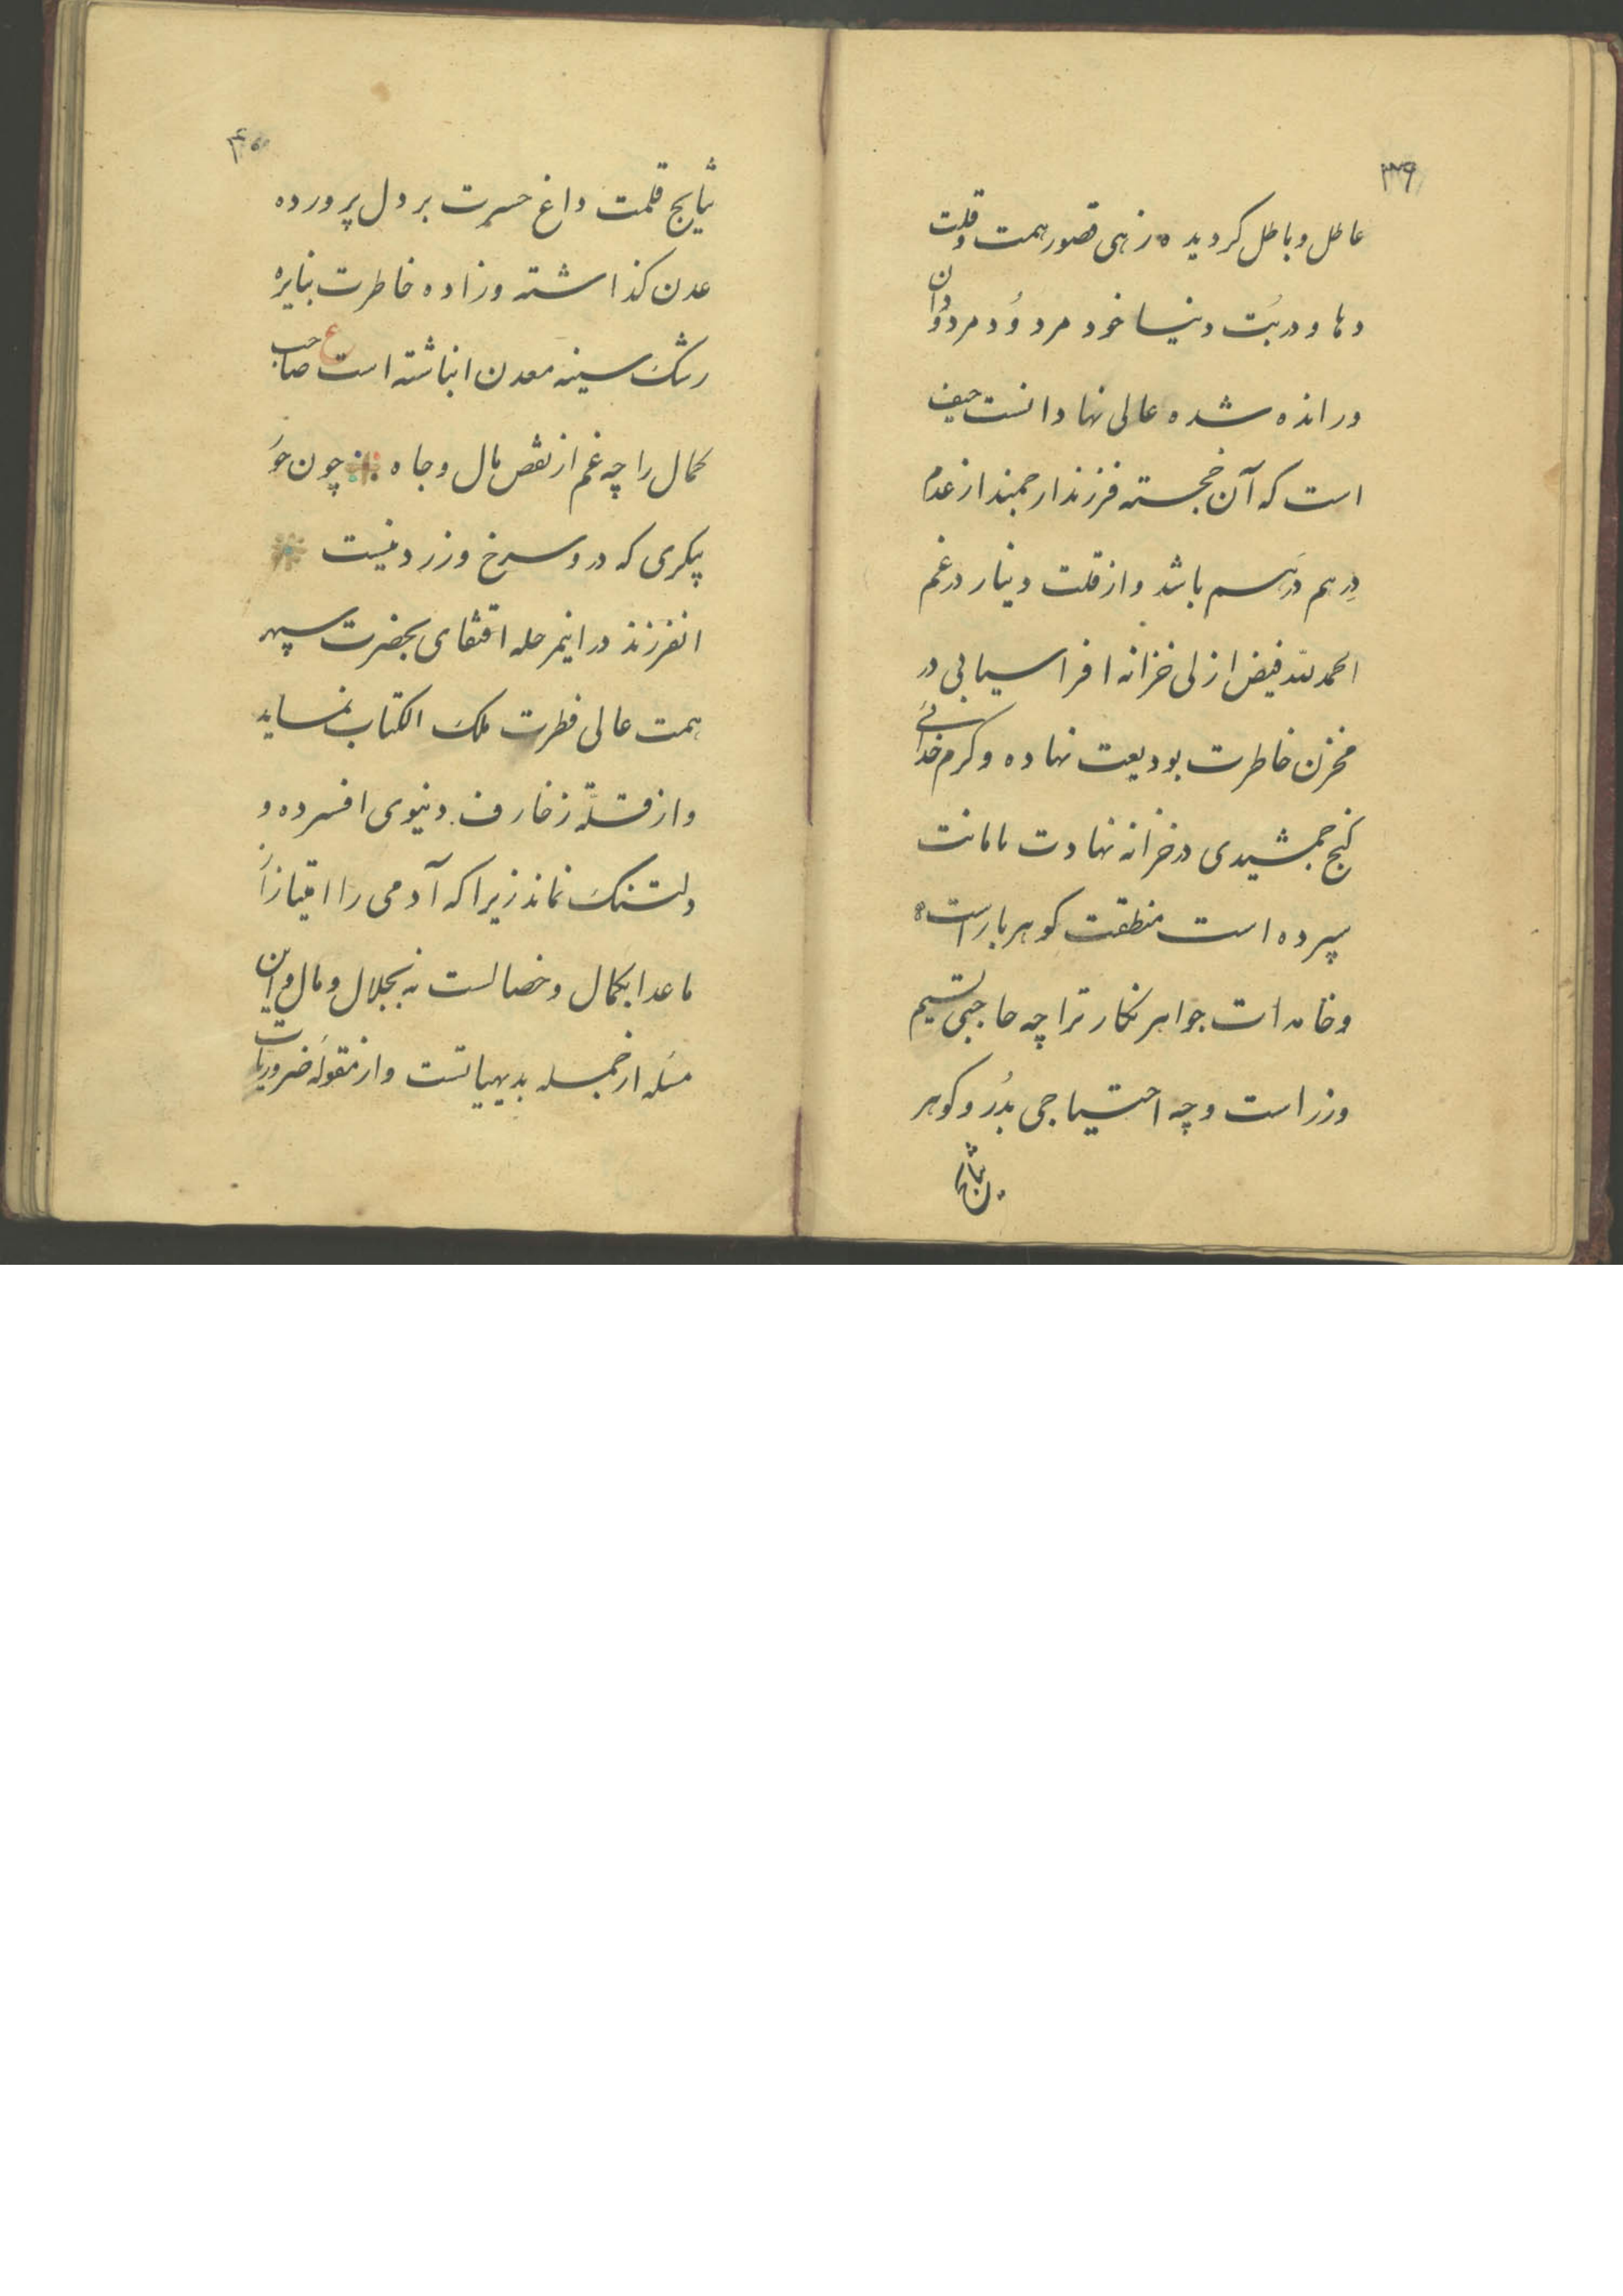 ۳۹
عاطل و باطل کردیده زهی قصور همت و قلت
دها و دربُت دنیا خود مردوُد مردوُدان
و رانده شده عالی نهادانست حیف
است که آن خجسته فرزند ارجمند از عدم
دِرهم دَرهم باشد و از قلت دینار در غم
الحمدلله فیض ازلی خزانه افراسیابی در
مخزن خاطرت بودیعت نهاده و کرم خدائی
کنج جمشیدی در خزانه نهادت بامانت
سپرده است منطقت کوهربار است
و خامه ات جواهر نکار ترا چه حاجتی بسیم
و زر است و چه احتیاجی بدُر و کوهر
نتایج
۴۰
نتایج قلمت داغ حسرت بر دل پرورده
عدن کذاشته و زاده خاطرت بنایره
رشک سینه معدن انباشته است ع صاحب
کمال را چه غم از نقص مال و جاه چون خوَ
پیکری که درو سرخ و زرد نیست
انفرزند در اینمرحله اقتفای بحضرت سپهر
همت عالی فطرت ملک الکتاب نماید
و از قلّة زخارف دنیوی افسرده و
دلتنک نماند زیرا که آدمی را امتیاز از
ماعدا بکمال و خصالست نه بجلال و مال و این
مسَله از جمله بدیهیاتست و از مقولهَ ضروریات